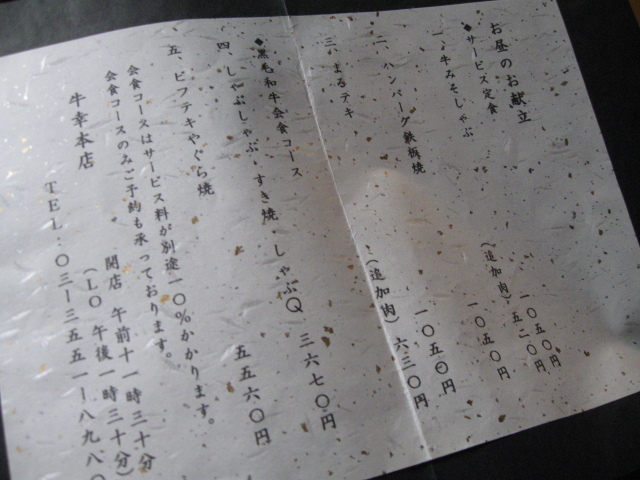 お昼のお献立
◆サービス定食
一、牛みそしゃぶ
一〇五〇円
(追加肉)五二〇円
二、ハンバーグ鉄板焼
一〇五〇円
三、まるテキ
一〇五〇円
(追加肉)六三〇円
◆黒毛和牛会食コース
四、しゃぶしゃぶ・すき焼・しゃぶQ
三六七〇円
五、ビフテキやぐら焼
五五六〇円
会食コースはサービス料が別途一〇%かかります。
会食コースのみご予約も承っております。
牛幸本店
開店 午前十一時三十分
(LO 午後一時三十分)
TEL:〇三―三五五一―八九八〇